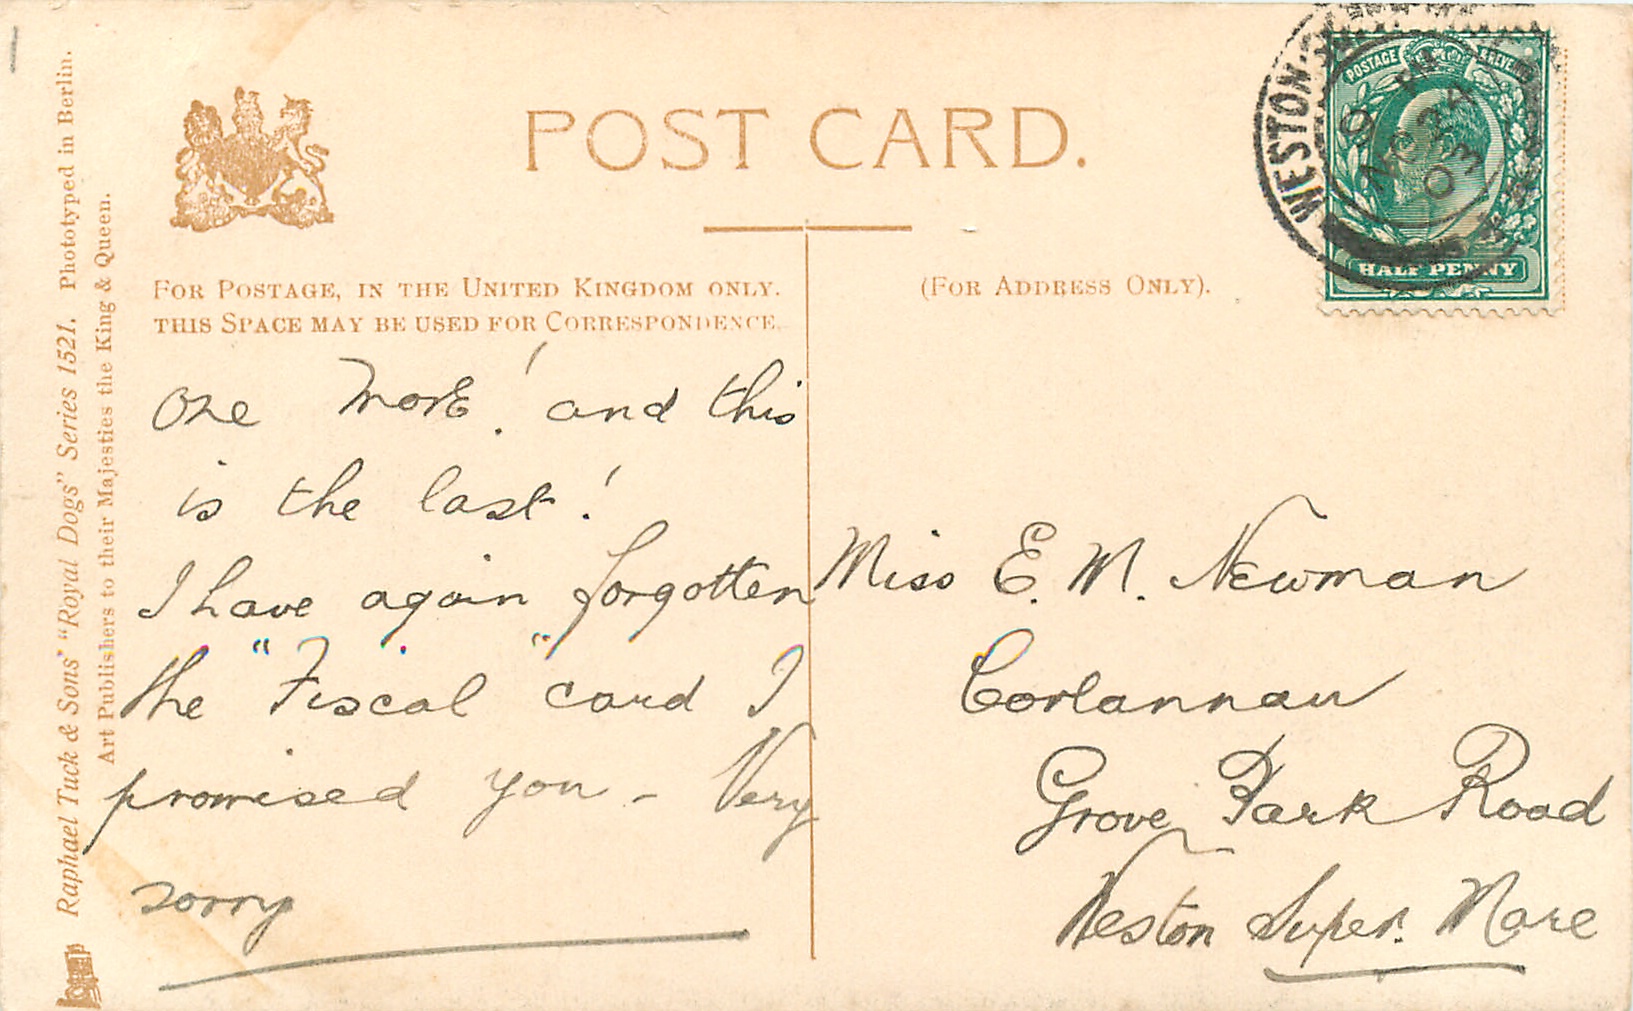 POST CARD.
FOR POSTAGE, IN THE UNITED KINGDOM ONLY.
THIS SPACE MAY BE USED FOR CORRESPONDENCE.
(FOR ADDRESS ONLY).
One More! and this
is the last!
I have again forgotten
the "Fiscal" card I
promised you – Very
sorry
Miss E. M. Newman
Corlannau
Grove Park Road
Weston Super. Mare
Raphael Tuck & Sons' "Royal Dogs" Series 1521. Phototyped in Berlin.
Art Publishers to their Majesties the King & Queen.
WESTON-S
POSTAGE REVENUE
HALF PENNY
03